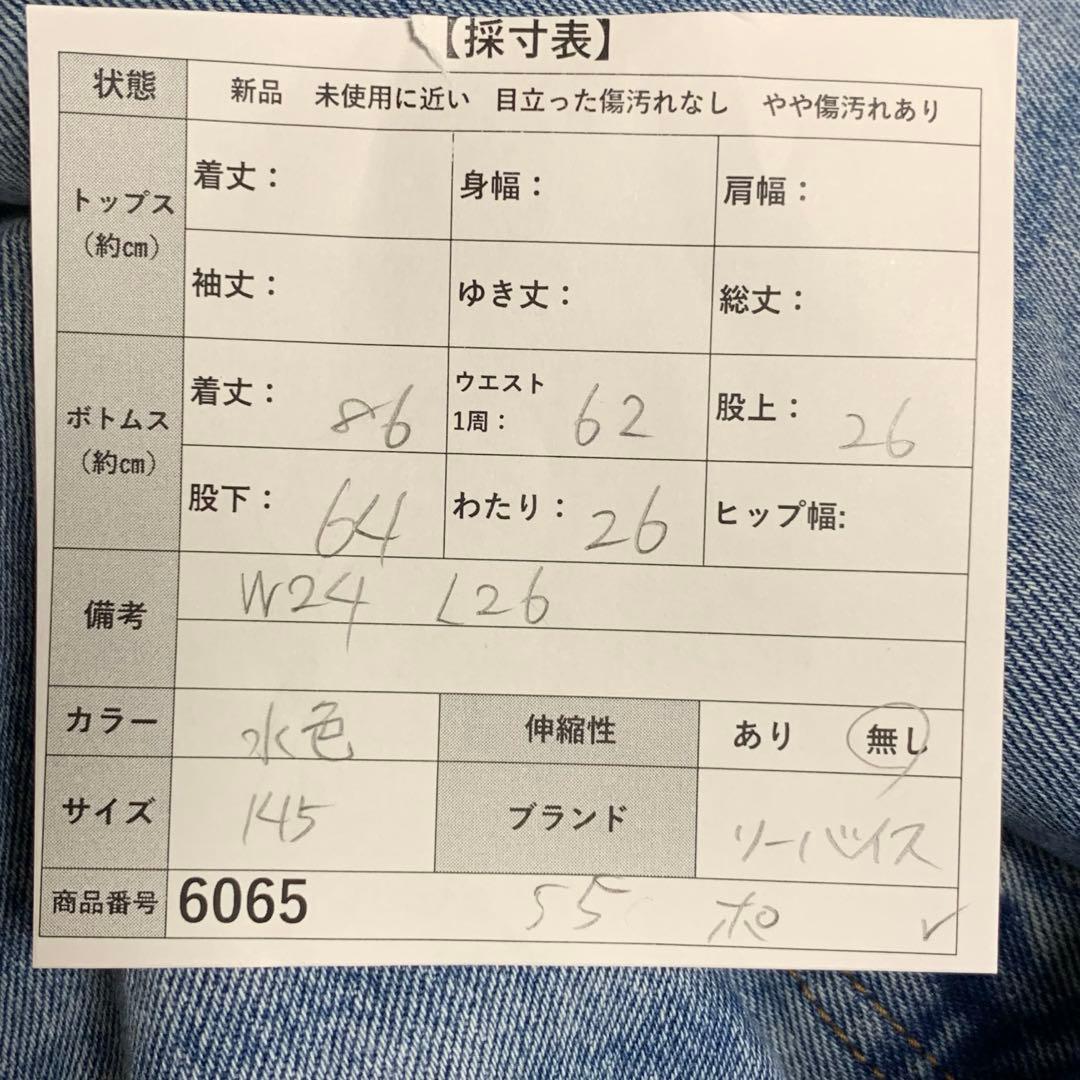 【採寸表】
状態 新品 未使用に近い 目立った傷汚れなし やや傷汚れあり
トップス（約㎝） 着丈： 身幅： 肩幅：
袖丈： ゆき丈： 総丈：
ボトムス（約㎝） 着丈： 86 ウエスト1周： 62 股上： 26
股下： 64 わたり： 26 ヒップ幅:
備考 W24 L26
カラー 水色 伸縮性 あり 無し
サイズ 145 ブランド リーバイス
商品番号 6065 55 ポ ✓